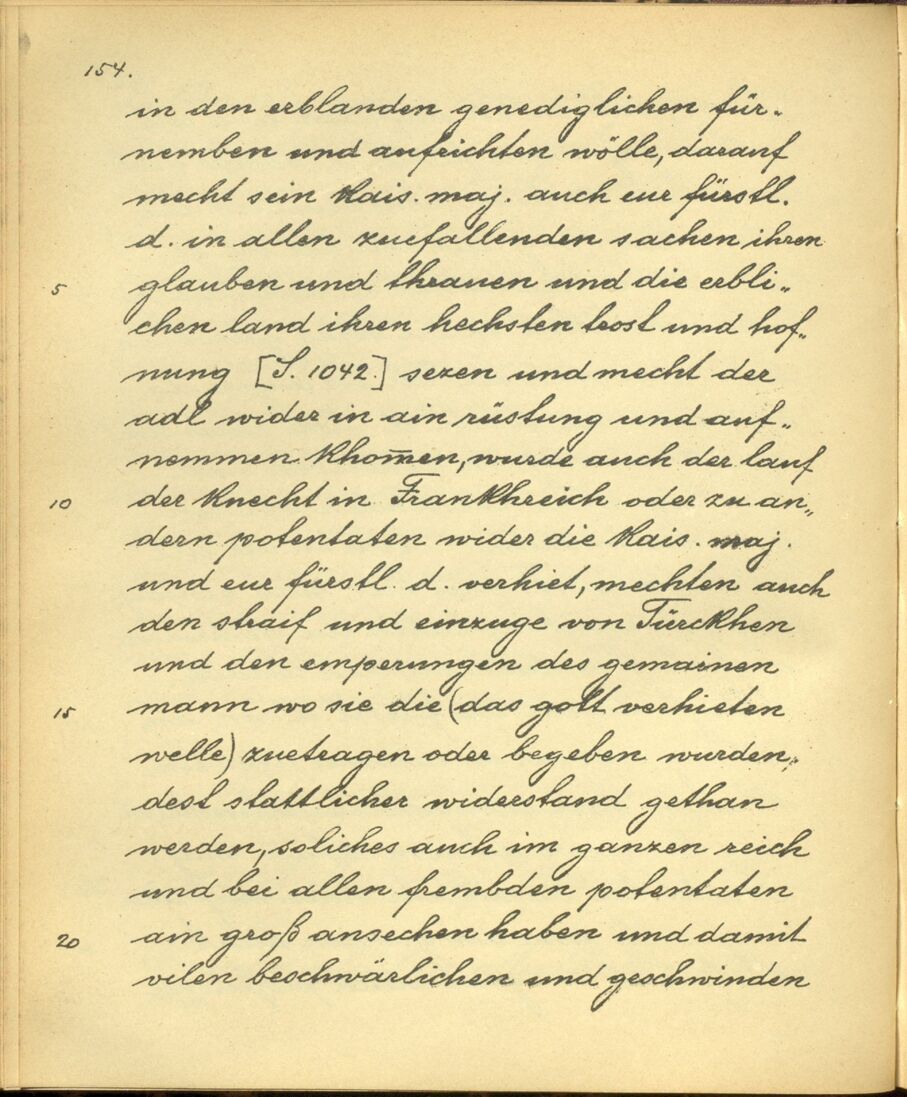 154.
in den erblanden genediglichen für-
nemben und aufrichten wölle, darauf
mecht sein kais. maj. auch eur fürstl.
d. in allen zuefallenden sachen ihren
5 glauben und thrauen und die erbli„
chen land ihren hechsten trost und hof„
nung [S. 1042.] sezen und mecht der
adl wider in ain rüstung und auf„
nemmen khom̄en, wurde auch der lauf
10 der knecht in Frankhreich oder zu an„
dern potentaten wider die kais. maj.
und eur fürstl. d. verhiet, mechten auch
den straif und einzuge von Türckhen
und den emperungen des gemainen
15 mann wo sie die (das gott verhieten
welle) zuetragen oder begeben wurden,
dest stattlicher widerstand gethan
werden, soliches auch im ganzen reich
und bei allen frembden potentaten
20 ain groß ansechen haben und damit
vilen beschwärlichen und geschwinden